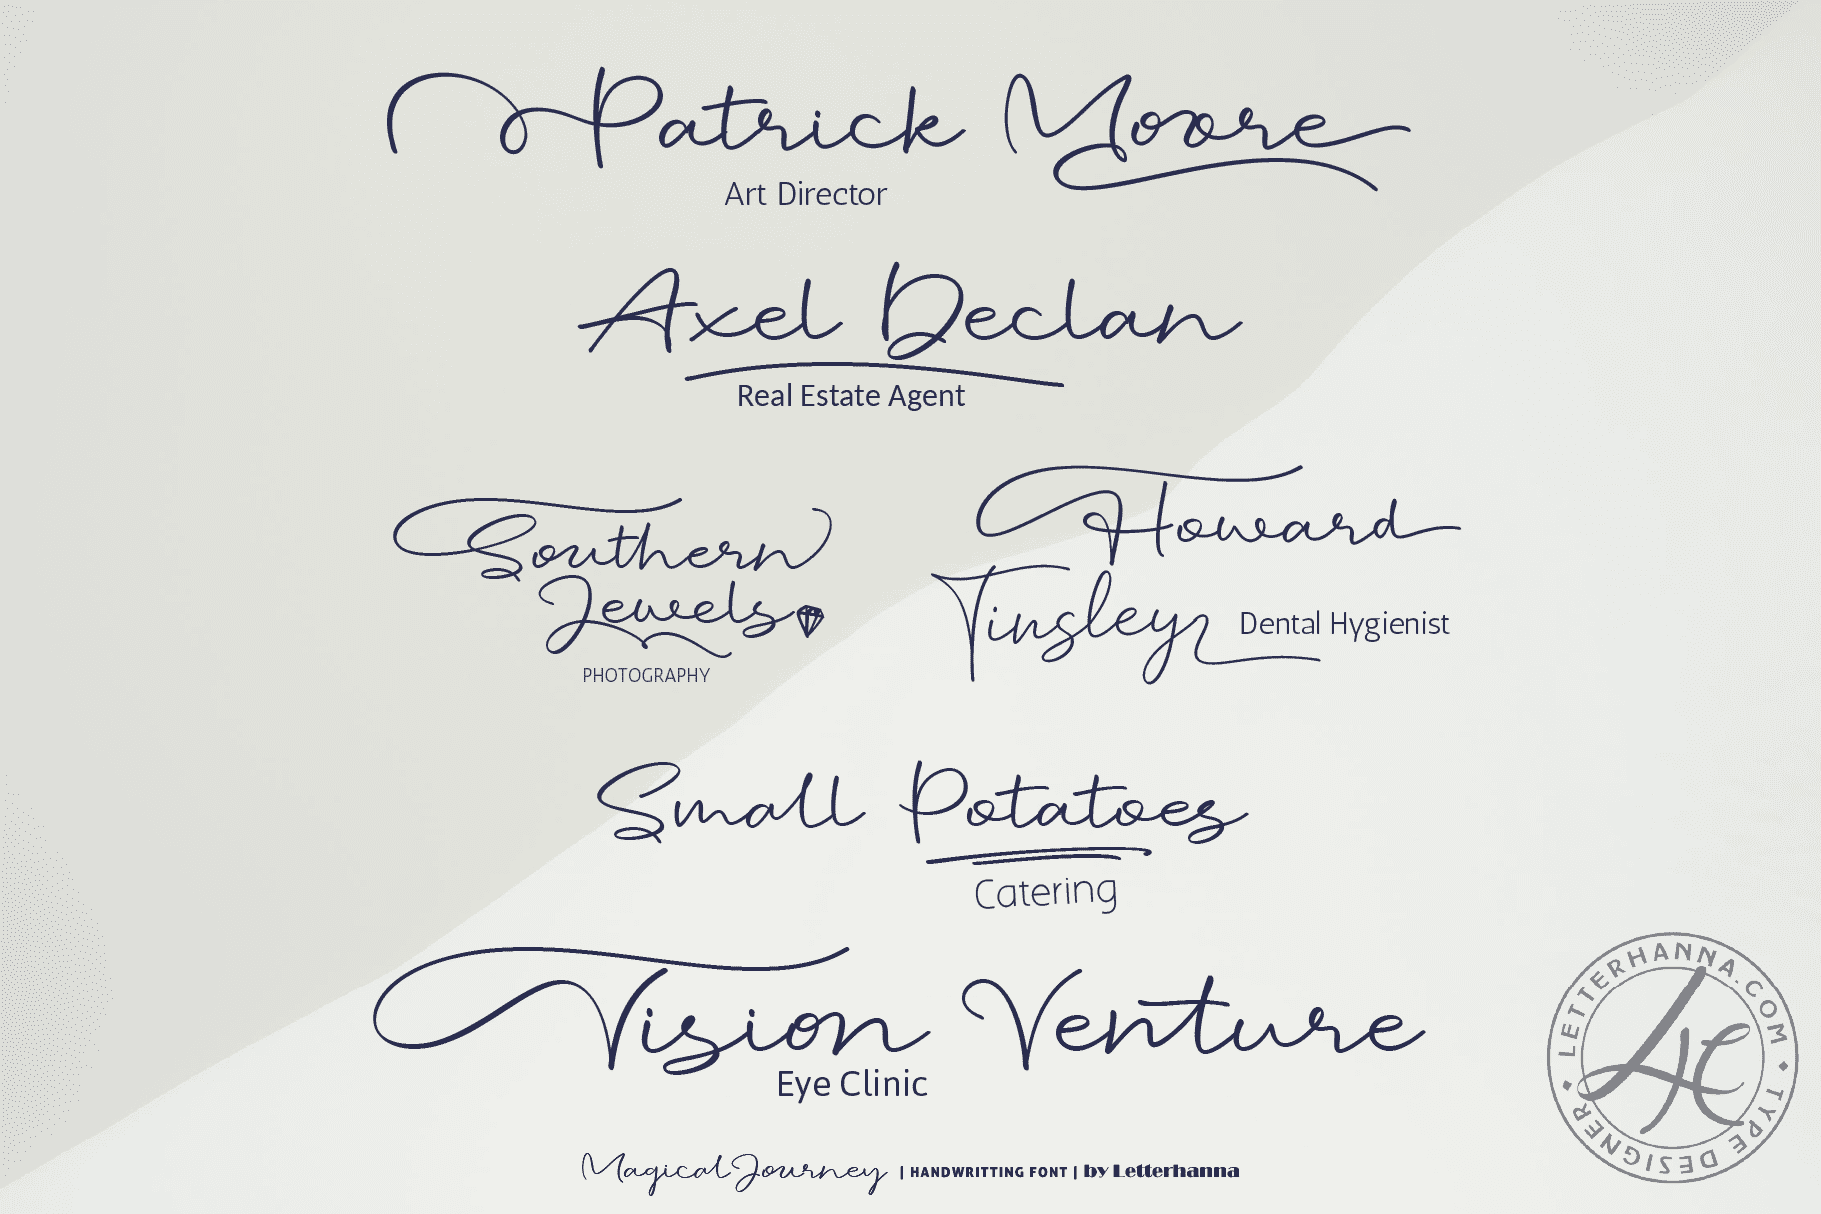 Patrick Moore
Art Director
Axel Declan
Real Estate Agent
Southern
Jewels
PHOTOGRAPHY
Howard
Tinsley
Dental Hygienist
Small Potatoes
Catering
Vision Venture
Eye Clinic
Magical Journey | HANDWRITTING FONT | by Letterhanna
LETTERHANNA.COM • TYPE DESIGNER •
LH